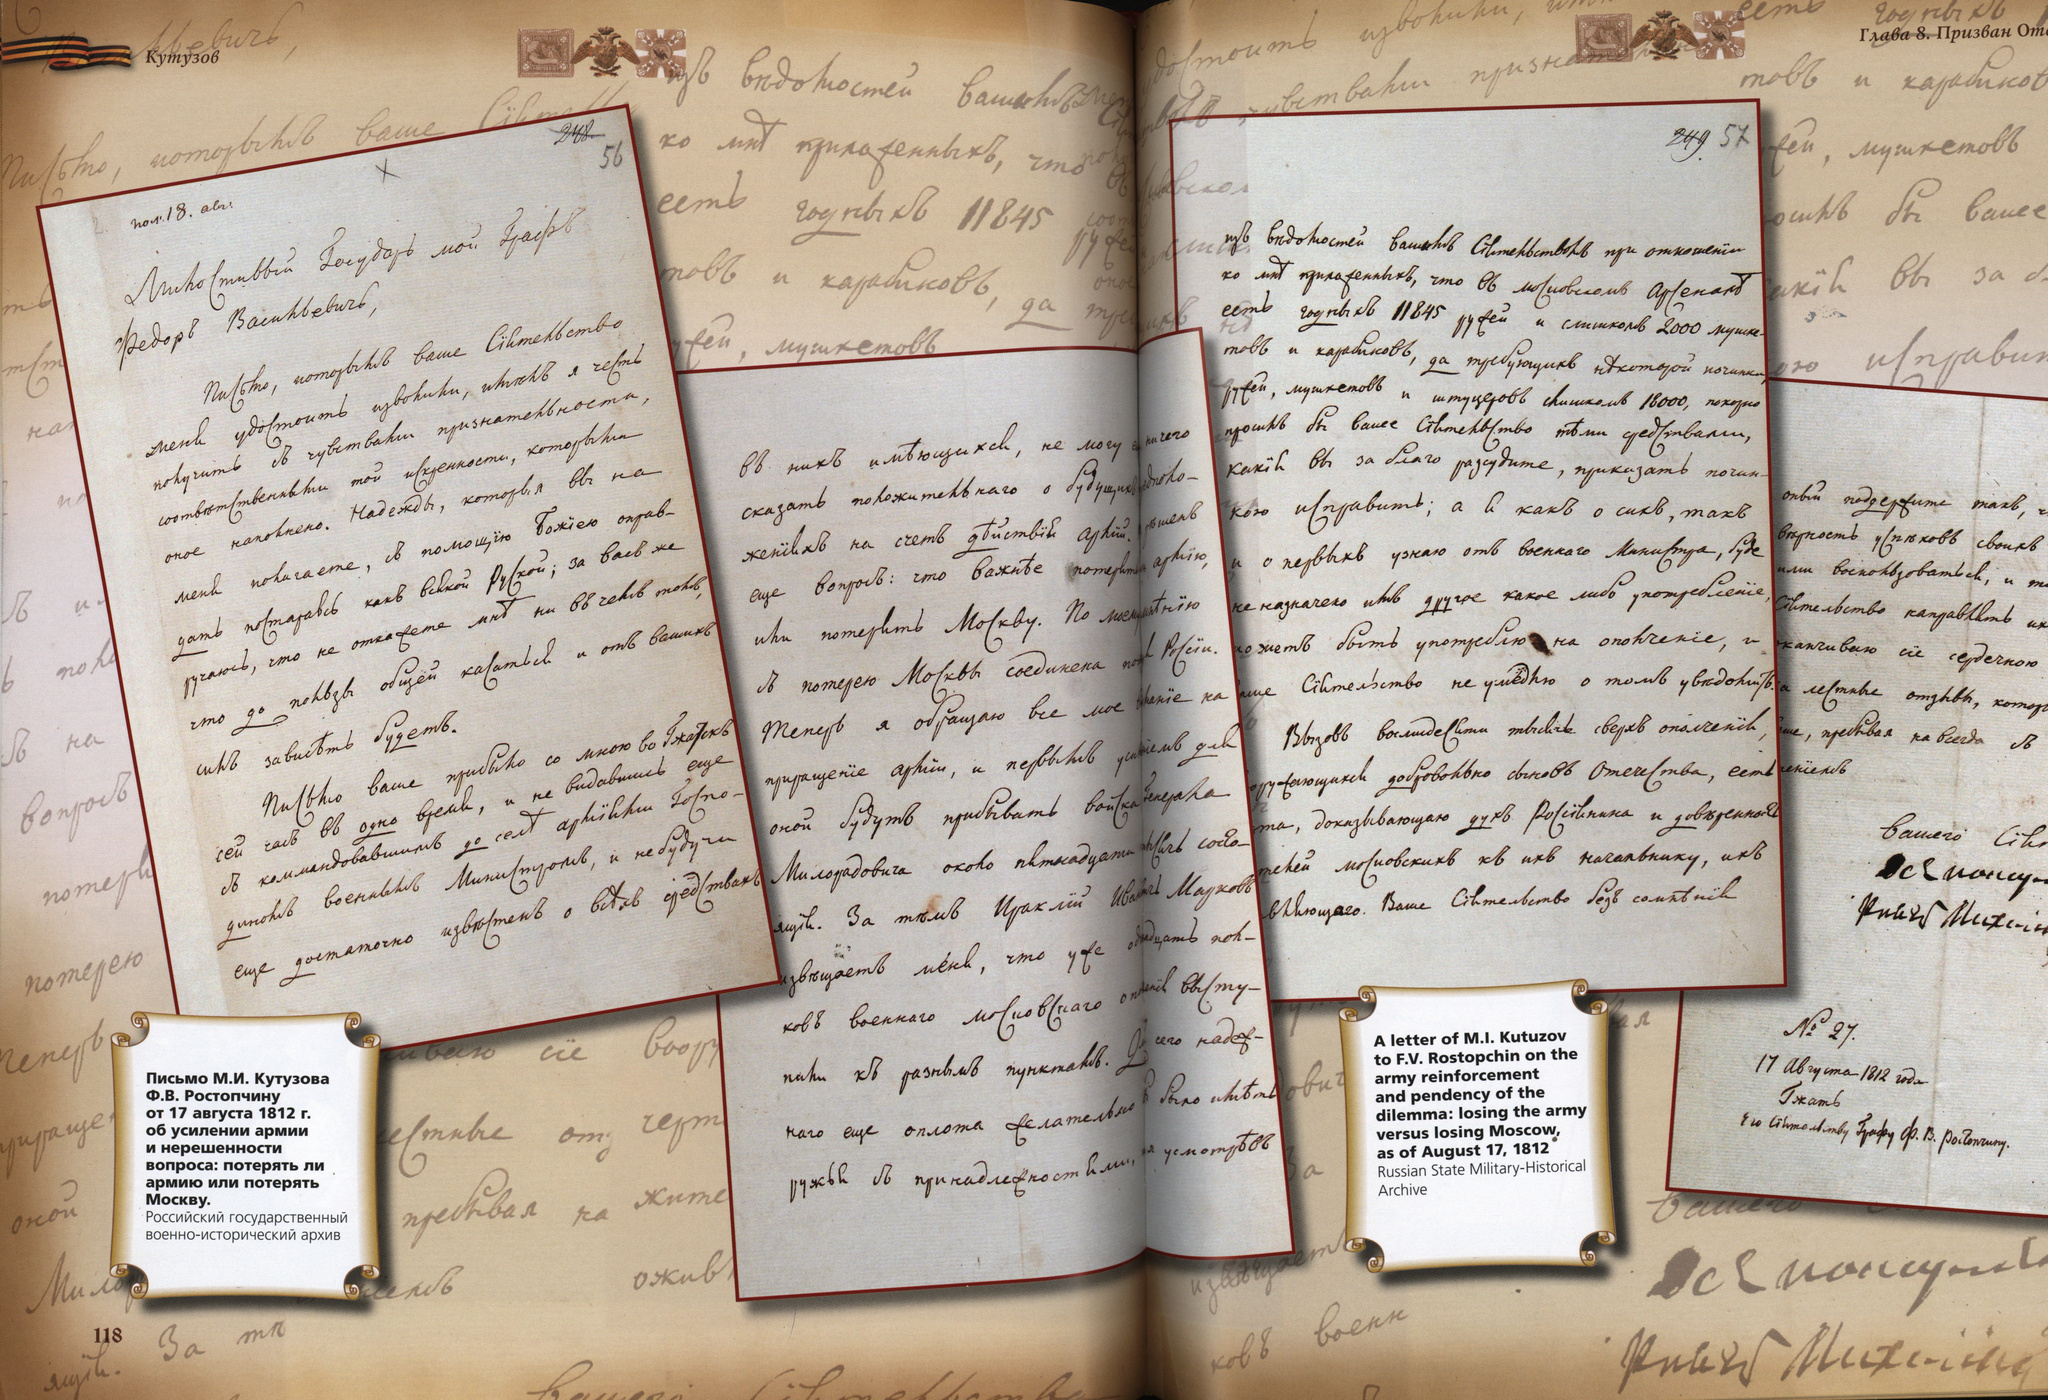 Кутузов
248.
56
пол. 18. авг:
Милостивый Государь мой Графъ
Федоръ Васильевичь,
Письмо, которымъ ваше Сіятельство
меня удостоить изволили, имѣлъ я честь
получить съ чувствами признательности,
соотвѣтственными той искренности, которыми
оное наполнено. Надежды, которыя вы на
меня полагаете, съ помощію Божіею оправ-
дать постараюсь какъ всякой Руской; за васъ же
ручаюсь, что не откажете мнѣ ни въ чемъ томъ,
что до пользы общей касаться и отъ вашихъ
силъ зависѣть будетъ.
Письмо ваше прибыло со мною во Гжатскъ
сей часъ въ одно время, и не видавшись еще
съ коммандовавшимъ до селѣ арміями Госпо-
диномъ военнымъ Министромъ, и небудучи
еще достаточно извѣстенъ о всѣхъ средствахъ
въ нихъ имѣющихся, не могу еще ничего
сказать положительнаго о будущихъ предполо-
женіяхъ на счетъ дѣйствій армій.
еще вопросъ: что важнѣе потерять армію,
или потерять Москву. По моему мнѣнію
съ потерею Москвы соединена потеря Россіи.
Теперь я обращаю все мое вниманіе на
приращеніе арміи, и первымъ усиліемъ для
оной будутъ прибывать войска Генерала
Милорадовича около пятнадцати тысячь состо-
ящія. За тѣмъ Ираклій Ивановичь Марковъ
извѣщаетъ меня, что уже одинадцать пол-
ковъ военнаго московскаго ополченія высту-
пили къ разнымъ пунктамъ. До сего надеж-
наго еще оплота желательно бъ было имѣть
ружья съ принадлежностями, и я усмотрѣвъ
Глава 8. Призван
249. 57
изъ вѣдомостей вашимъ Сіятельствомъ при отношеніи
ко мнѣ приложенныхъ, что въ московскомъ Арсеналѣ
есть годныхъ 11845 ружей и слишкомъ 2000 мушке-
товъ и карабиновъ, да требующихъ нѣкоторой починки
ружей, мушкетовъ и штуцеровъ слишкомъ 18000, покорно
просилъ бы ваше Сіятельство тѣми средствами,
какія вы за благо разсудите, приказать почин-
кою исправить; а я какъ о сихъ, такъ
и о первыхъ узнаю отъ военнаго Министра, буде
не назначено имъ другое какое либо употребленіе,
можетъ быть употреблю на ополченіе, и
ваше Сіятельство не умедлю о томъ увѣдомить.
Вызовъ восмидесяти тысячь сверхъ ополченія,
вооружающихся добровольно сыновъ Отечества, есть
черта, доказывающаю духъ Россіянина и довѣренность
жителей московскихъ къ ихъ начальнику, ихъ
оживляющаго. Ваше Сіятельство безъ сомнѣнія
оный поддержите такъ,
вѣрность успѣховъ своихъ
ими воспользоваться, и
Сіятельство направлять их
канчиваю сіе сердечною
за лестные отзывы, котор
пребывая на всегда съ
Вашего
№ 27.
17 Августа 1812 года
Гжать
Его Сіятельству Графу Ф. В. Ростопчину.
Письмо М.И. Кутузова
Ф.В. Ростопчину
от 17 августа 1812 г.
об усилении армии
и нерешенности
вопроса: потерять ли
армию или потерять
Москву.
Российский государственный
военно-исторический архив
A letter of M.I. Kutuzov
to F.V. Rostopchin on the
army reinforcement
and pendency of the
dilemma: losing the army
versus losing Moscow,
as of August 17, 1812
Russian State Military-Historical
Archive
118